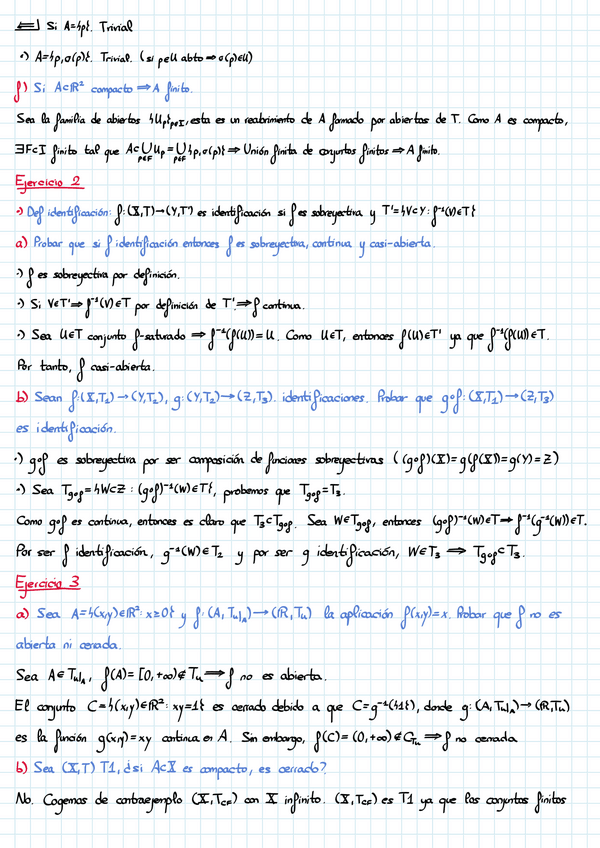 ⇐ Si A={p}. Trivial
·) A={p,σ(p)}. Trivial. (si p∈U abto ⇒ σ(p)∈U)
f) Si A⊂ℝ² compacto ⇒ A finito.
Sea la familia de abiertos {U_p}_{p∈I}, esta es un recubrimiento de A formado por abiertos de T. Como A es compacto,
∃F⊂I finito tal que A⊂⋃_{p∈F} U_p = ⋃_{p∈F} {p,σ(p)} ⇒ Unión finita de conjuntos finitos ⇒ A finito.
Ejercicio 2
·) Def identificación: f:(X,T)→(Y,T') es identificación si f es sobreyectiva y T'={V⊂Y: f⁻¹(V)∈T}
a) Probar que si f identificación entonces f es sobreyectiva, continua y casi-abierta.
·) f es sobreyectiva por definición.
·) Si V∈T' ⇒ f⁻¹(V)∈T por definición de T'. ⇒ f continua.
·) Sea U∈T conjunto f-saturado ⇒ f⁻¹(f(U))=U. Como U∈T, entonces f(U)∈T' ya que f⁻¹(f(U))∈T.
Por tanto, f casi-abierta.
b) Sean f:(X,T₁)→(Y,T₂), g:(Y,T₂)→(Z,T₃). identificaciones. Probar que g∘f:(X,T₁)→(Z,T₃)
es identificación.
·) g∘f es sobreyectiva por ser composición de funciones sobreyectivas ((g∘f)(X)=g(f(X))=g(Y)=Z)
·) Sea T_{g∘f}={W⊂Z : (g∘f)⁻¹(W)∈T}, probemos que T_{g∘f}=T₃.
Como g∘f es continua, entonces es claro que T₃⊂T_{g∘f}. Sea W∈T_{g∘f}, entonces (g∘f)⁻¹(W)∈T ⇒ f⁻¹(g⁻¹(W))∈T.
Por ser f identificación, g⁻¹(W)∈T₂ y por ser g identificación, W∈T₃ ⇒ T_{g∘f}⊂T₃.
Ejercicio 3
a) Sea A={(x,y)∈ℝ²: x≥0} y f:(A,T_u|_A)→(ℝ,T_u) la aplicación f(x,y)=x. Probar que f no es
abierta ni cerrada.
Sea A∈T_u|_A, f(A)=[0,+∞)∉T_u ⇒ f no es abierta.
El conjunto C={(x,y)∈ℝ²: xy=1} es cerrado debido a que C=g⁻¹({1}), donde g:(A,T_u|_A)→(ℝ,T_u)
es la función g(x,y)=xy continua en A. Sin embargo, f(C)=(0,+∞)∉C_{T_u} ⇒ f no cerrada
b) Sea (X,T) T1, ¿si A⊂X es compacto, es cerrado?
No. Cogemos de contraejemplo (X,T_CF) con X infinito. (X,T_CF) es T1 ya que los conjuntos finitos